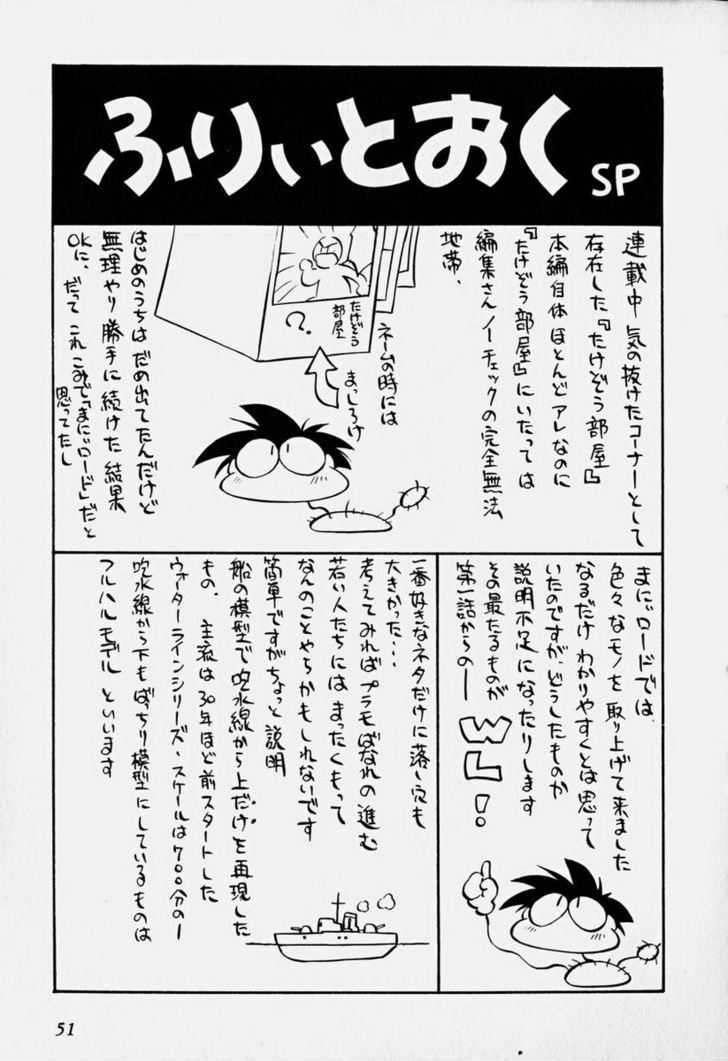 ふりぃとおく SP
連載中 気の抜けたコーナーとして
存在した『たけぞう部屋』
本編自体 ほとんどアレなのに
『たけぞう部屋』にいたっては
編集さん ノーチェックの完全無法
地帯、
ネームの時には
まっしろけ
たけぞう
部屋
?
はじめのうちは だめ出てたんだけど
無理やり勝手に続けた結果
OKに、
だって これ こみで「まにぃロード」だと
思ってたし
まにぃロードでは、
色々なモノを取り上げて来ました
なるだけ わかりやすくとは思って
いたのですが、どうしたものか
説明不足になったりします
その最たるものが
第一話からの―
WL!
一番好きなネタだけに落し穴も
大きかった・・・
考えてみればプラモばなれの進む
若い人たちには まったくもって
なんのことやらかもしれないです
簡単ですがちょっと説明
船の模型で吹水線から上だけを再現した
もの、主流は30年ほど前スタートした
ウォーターラインシリーズ・スケールは700分の一
吹水線から下もばっちり模型にしているものは
フルハルモデル といいます
51